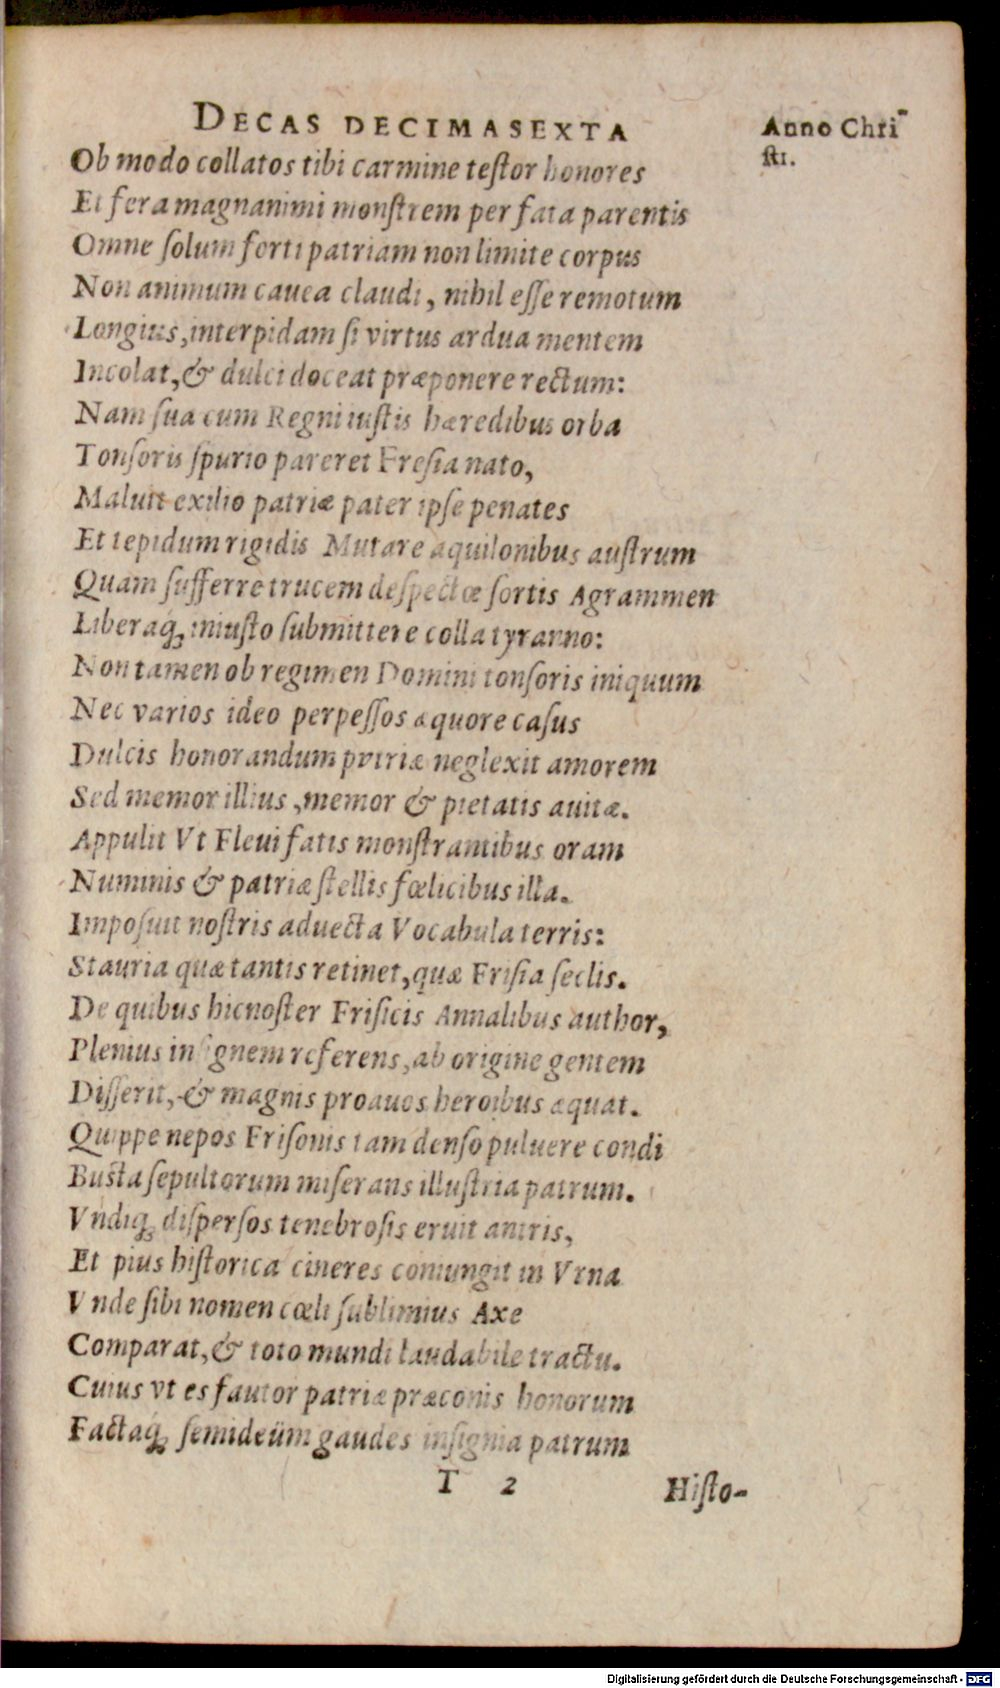 DECAS DECIMASEXTA
Anno Chri-
ſti.
Ob modo collatos tibi carmine teſtor honores
Et fera magnanimi monſtrem per fata parentis
Omne ſolum forti patriam non limite corpus
Non animum cauea claudi, nihil eſſe remotum
Longius, interpidam ſi virtus ardua mentem
Incolat, & dulci doceat præponere rectum:
Nam ſua cum Regni iuſtis hæredibus orba
Tonſoris ſpurio pareret Freſia nato,
Maluit exilio patriæ pater ipſe penates
Et tepidum rigidis Mutare aquilonibus auſtrum
Quam ſufferre trucem deſpectæ ſortis Agrammen
Liberaq́; iniuſto ſubmittere colla tyranno:
Non tamen ob regimen Domini tonſoris iniquum
Nec varios ideo perpeſſos æquore caſus
Dulcis honorandum pvtriæ neglexit amorem
Sed memor illius, memor & pietatis auitæ.
Appulit Vt Fleui fatis monſtrantibus oram
Numinis & patriæ ſtellis fœlicibus illa.
Impoſuit noſtris aduecta Vocabula terris:
Stauria quæ tantis retinet, quæ Friſia ſeclis.
De quibus hic noſter Friſicis Annalibus author,
Plenius inſignem referens, ab origine gentem
Diſſerit, & magnis proauos heroibus æquat.
Quippe nepos Friſonis tam denſo puluere condi
Buſta ſepultorum miſerans illuſtria patrum.
Vndiq; diſperſos tenebroſis eruit antris,
Et pius hiſtorica cineres coniungit in Vrna
Vnde ſibi nomen cœli ſublimius Axe
Comparat, & toto mundi laudabile tractu.
Cuius vt es fautor patriæ præconis honorum
Factaq́; ſemideüm gaudes inſignia patrum
T 2
Hiſto-
Digitalisierung gefördert durch die Deutsche Forschungsgemeinschaft - DFG